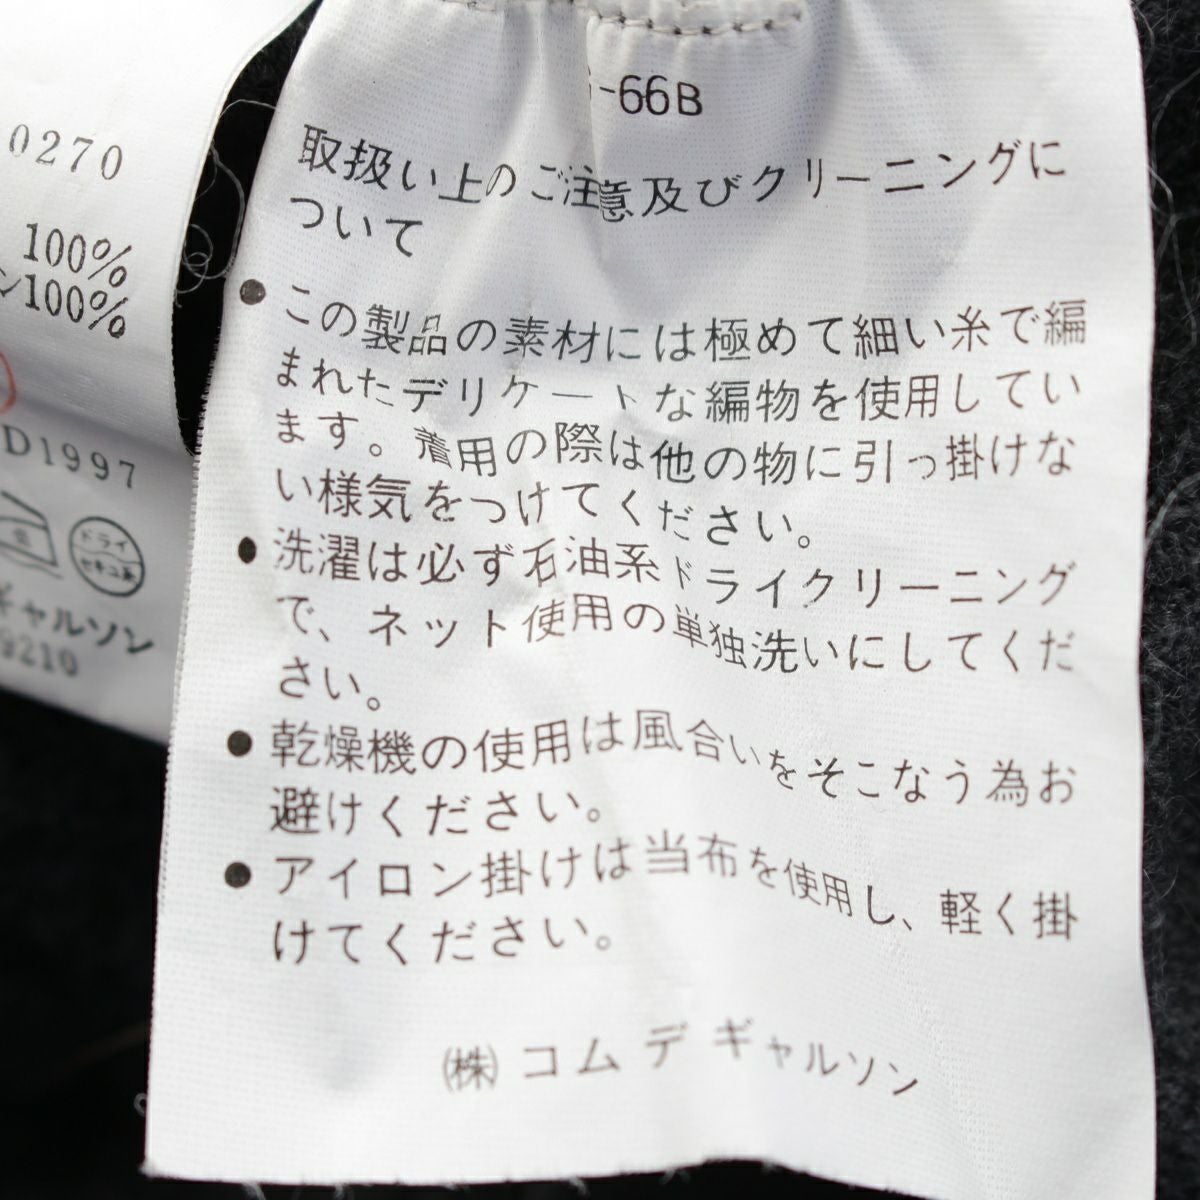 0270
100%
ン100%
D1997
ドライ
セキユ系
ギャルソン
9210
-66B
取扱い上のご注意及びクリーニングに
ついて
●この製品の素材には極めて細い糸で編
まれたデリケートな編物を使用してい
ます。着用の際は他の物に引っ掛けな
い様気をつけてください。
●洗濯は必ず石油系ドライクリーニング
で、ネット使用の単独洗いにしてくだ
さい。
●乾燥機の使用は風合いをそこなう為お
避けください。
●アイロン掛けは当布を使用し、軽く掛
けてください。
㈱コムデギャルソン